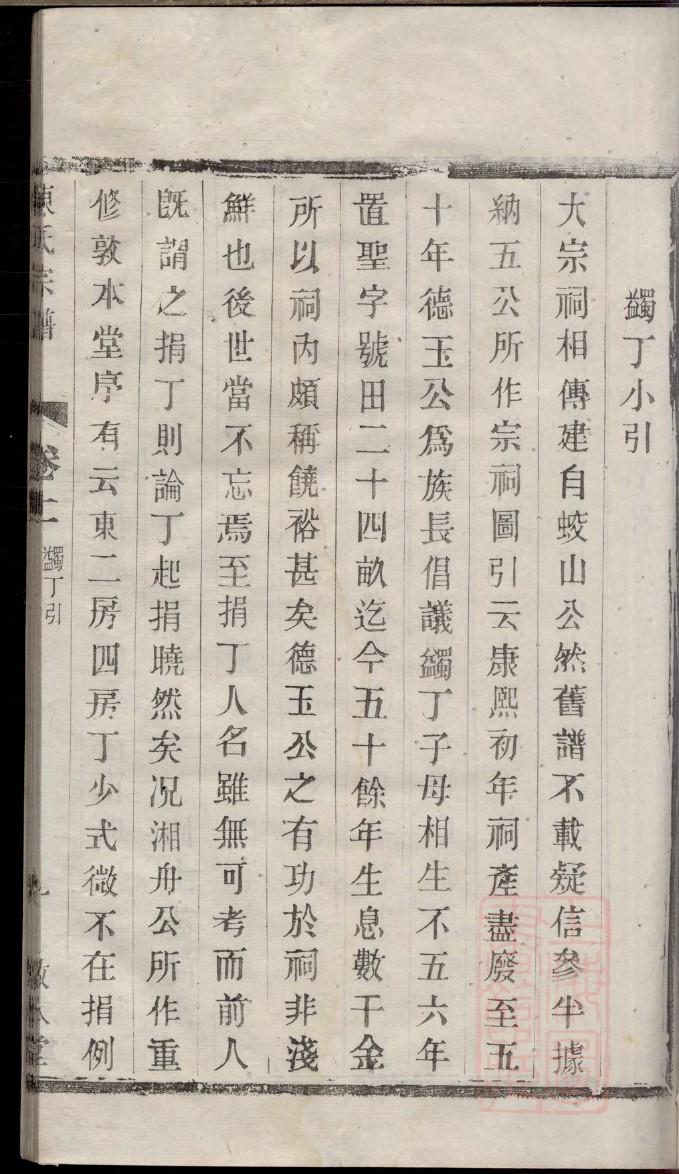 蠲丁小引
大宗祠相傳建自蛟山公然舊譜不載疑信參半據
納五公所作宗祠圖引云康熙初年祠產盡廢至五
十年德玉公為族長倡議蠲丁子母相生不五六年
置聖字號田二十四畝迄今五十餘年生息數千金
所以祠內頗稱饒裕甚矣德玉公之有功於祠非淺
鮮也後世當不忘焉至捐丁人名雖無可考而前人
既謂之捐丁則論丁起捐曉然矣况湘舟公所作重
修敦本堂序有云東二房四房丁少式微不在捐例
陳氏宗譜
卷二
蠲丁引
九
敦本堂